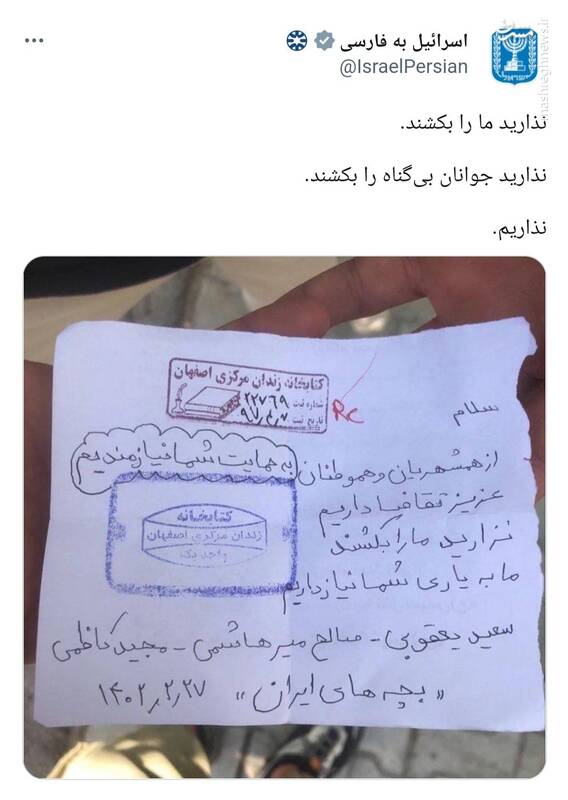 اسرائیل به فارسی
@IsraelPersian
mashreghnews.ir
نذارید ما را بکشند.
نذارید جوانان بی‌گناه را بکشند.
نذاریم.
کتابخانه زندان مرکزی اصفهان
شماره ثبت ۲۲۷۶۹
تاریخ ثبت ۹۷٫۴٫۷
RC
سلام
از همشهریان و هموطنان به حمایت شما نیازمندیم
عزیز تقاضا داریم
نزارید ما را بکشند
ما به یاری شما نیاز داریم
کتابخانه
زندان مرکزی اصفهان
واحد یک
سعید یعقوبی - صالح میرهاشمی - مجید کاظمی
«بچه های ایران» ۱۴۰۲٫۲٫۲۷